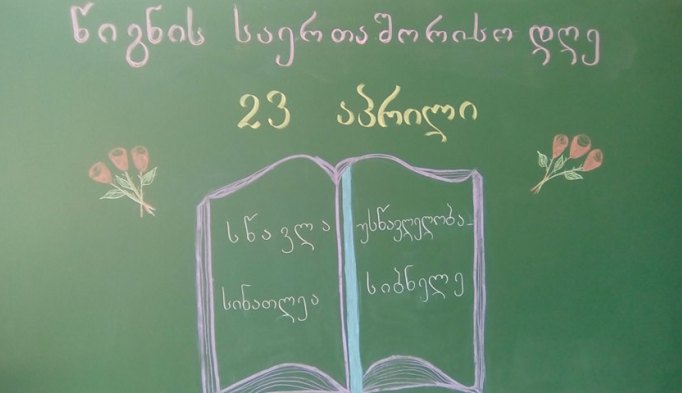 წიგნის საერთაშორისო დღე
23 აპრილი
სწავლა
სინათლეა
უსწავლელობა-
სიბნელე